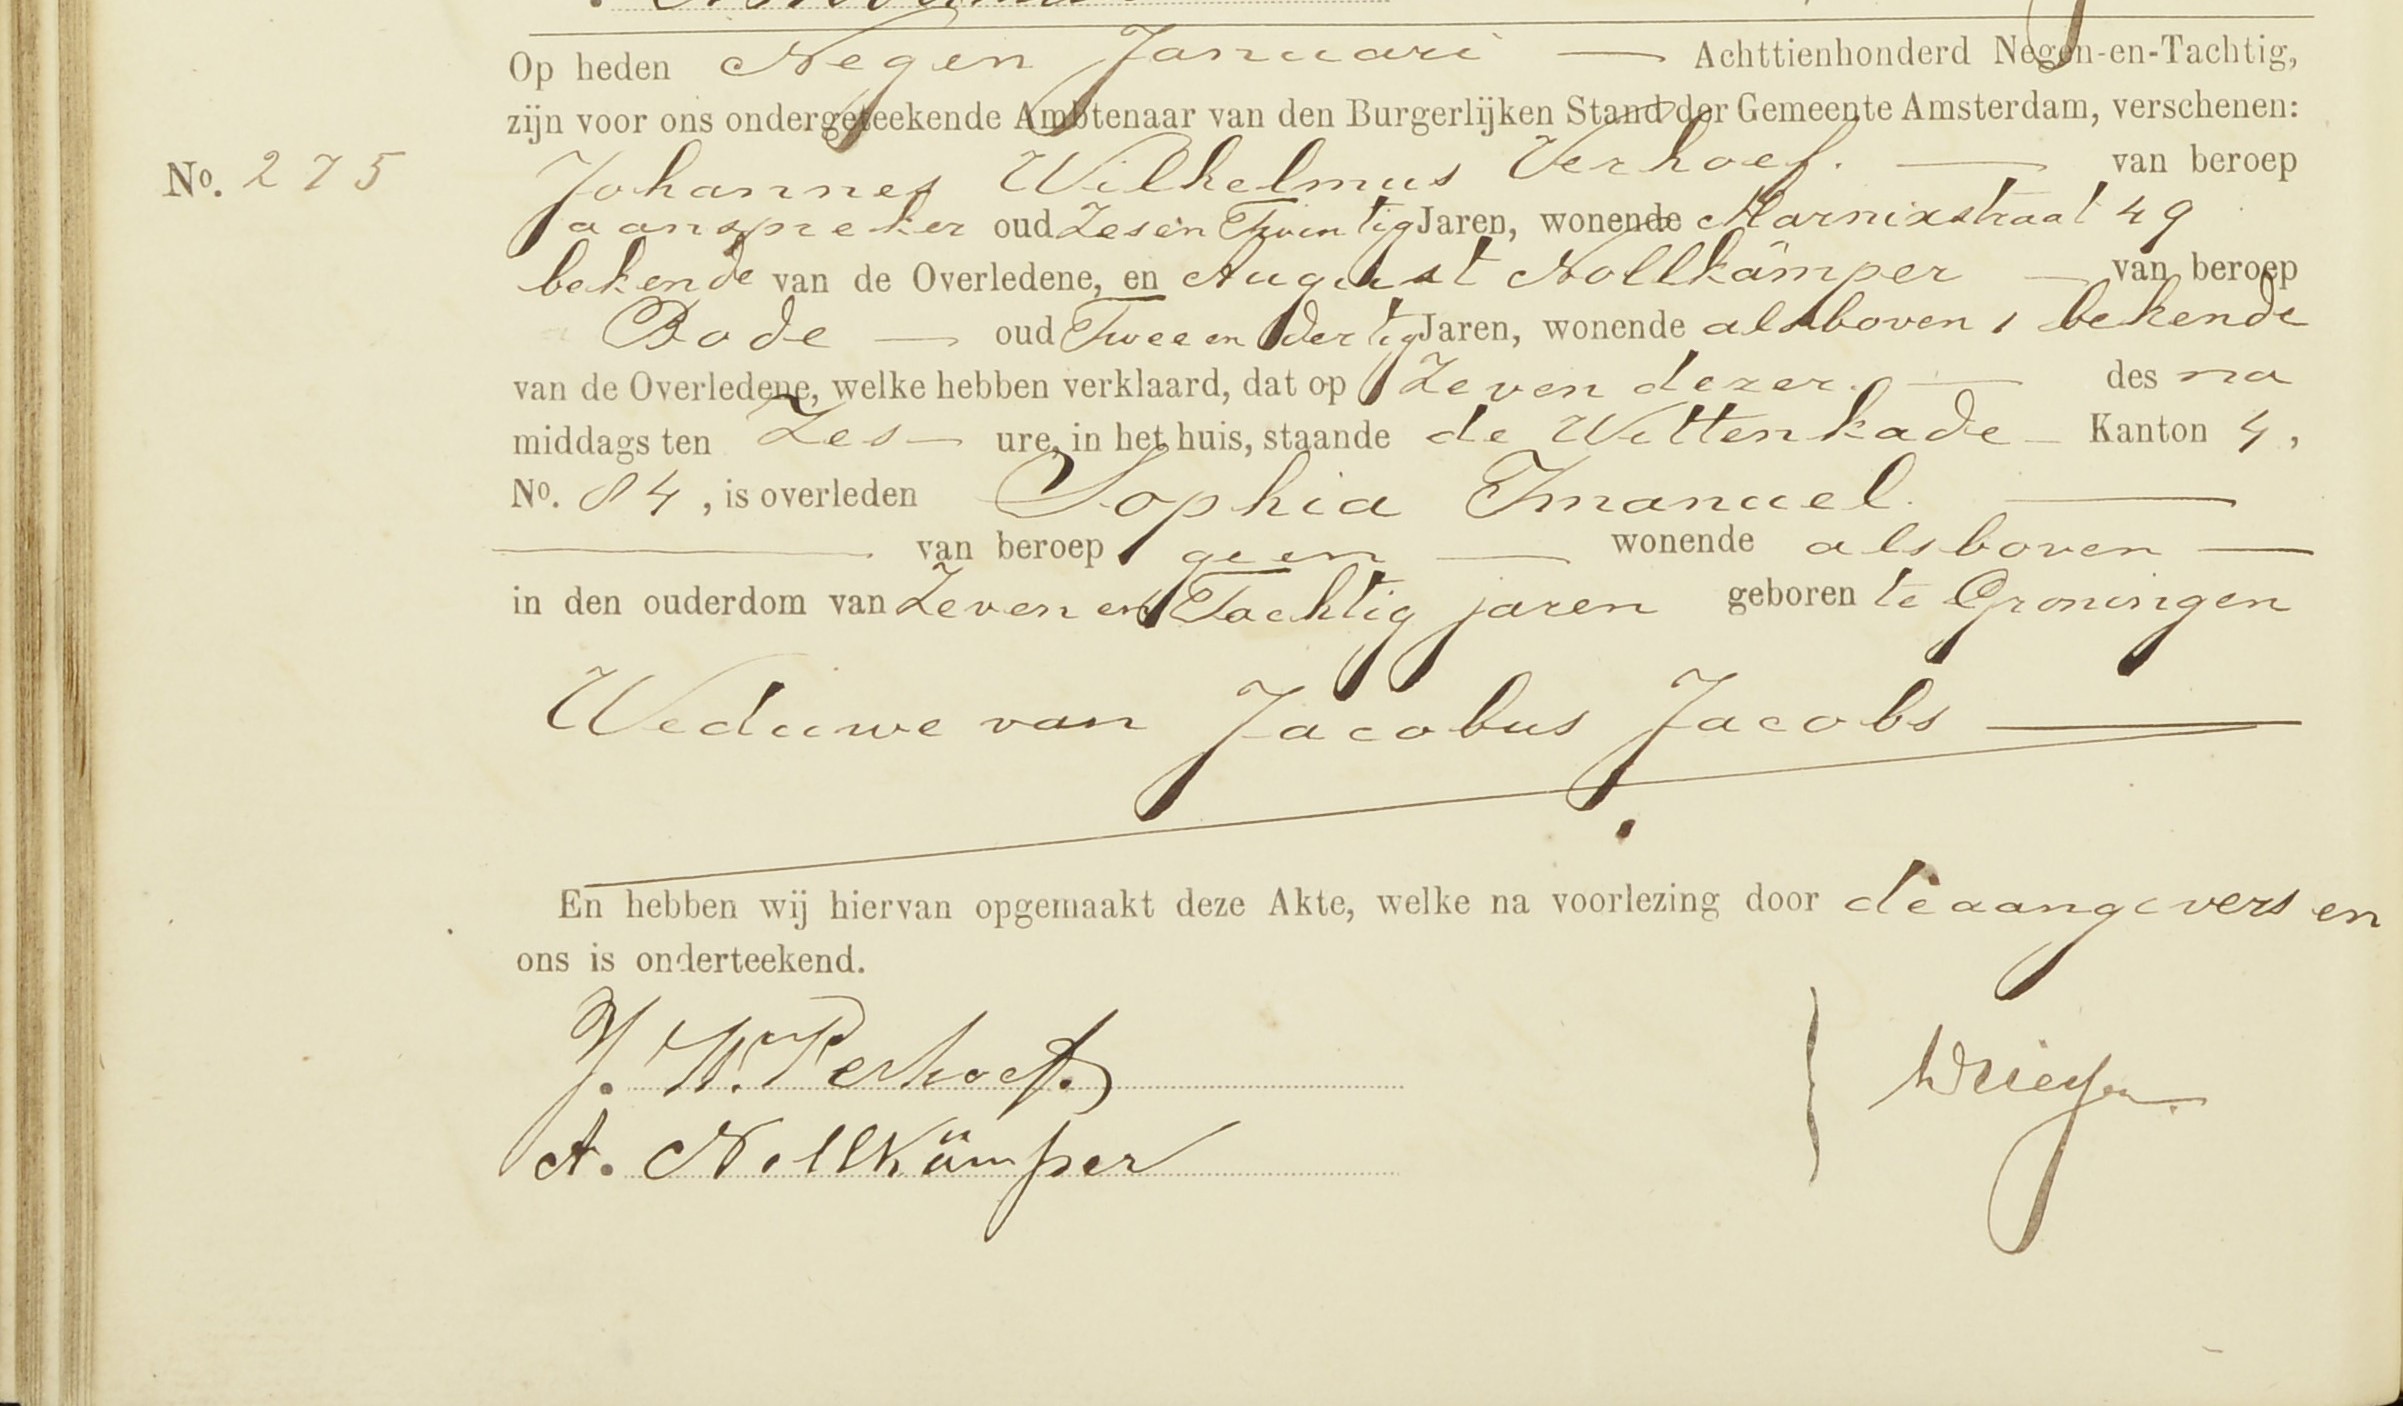 Op heden Negen Januari — Achttienhonderd Negen-en-Tachtig,
zijn voor ons ondergeteekende Ambtenaar van den Burgerlijken Stand der Gemeente Amsterdam, verschenen:
No. 275 Johannes Wilhelmus Verhoef. — van beroep
aanspreker oud Zesen Twintig Jaren, wonende Marnixstraat 49
bekende van de Overledene, en August Nollkämper — van beroep
Bode — oud Twee en dertig Jaren, wonende alsboven, bekende
van de Overledene, welke hebben verklaard, dat op Zeven dezer. — des na
middags ten Zes — ure, in het huis, staande de Wittenkade — Kanton 4,
No. 84, is overleden Sophia Imanuel. —
— van beroep geen — wonende alsboven —
in den ouderdom van Zeven en Tachtig jaren geboren te Groningen
Weduwe van Jacobus Jacobs —
En hebben wij hiervan opgemaakt deze Akte, welke na voorlezing door de aangevers en
ons is onderteekend.
J. W. Verhoef.
A. Nollkämper